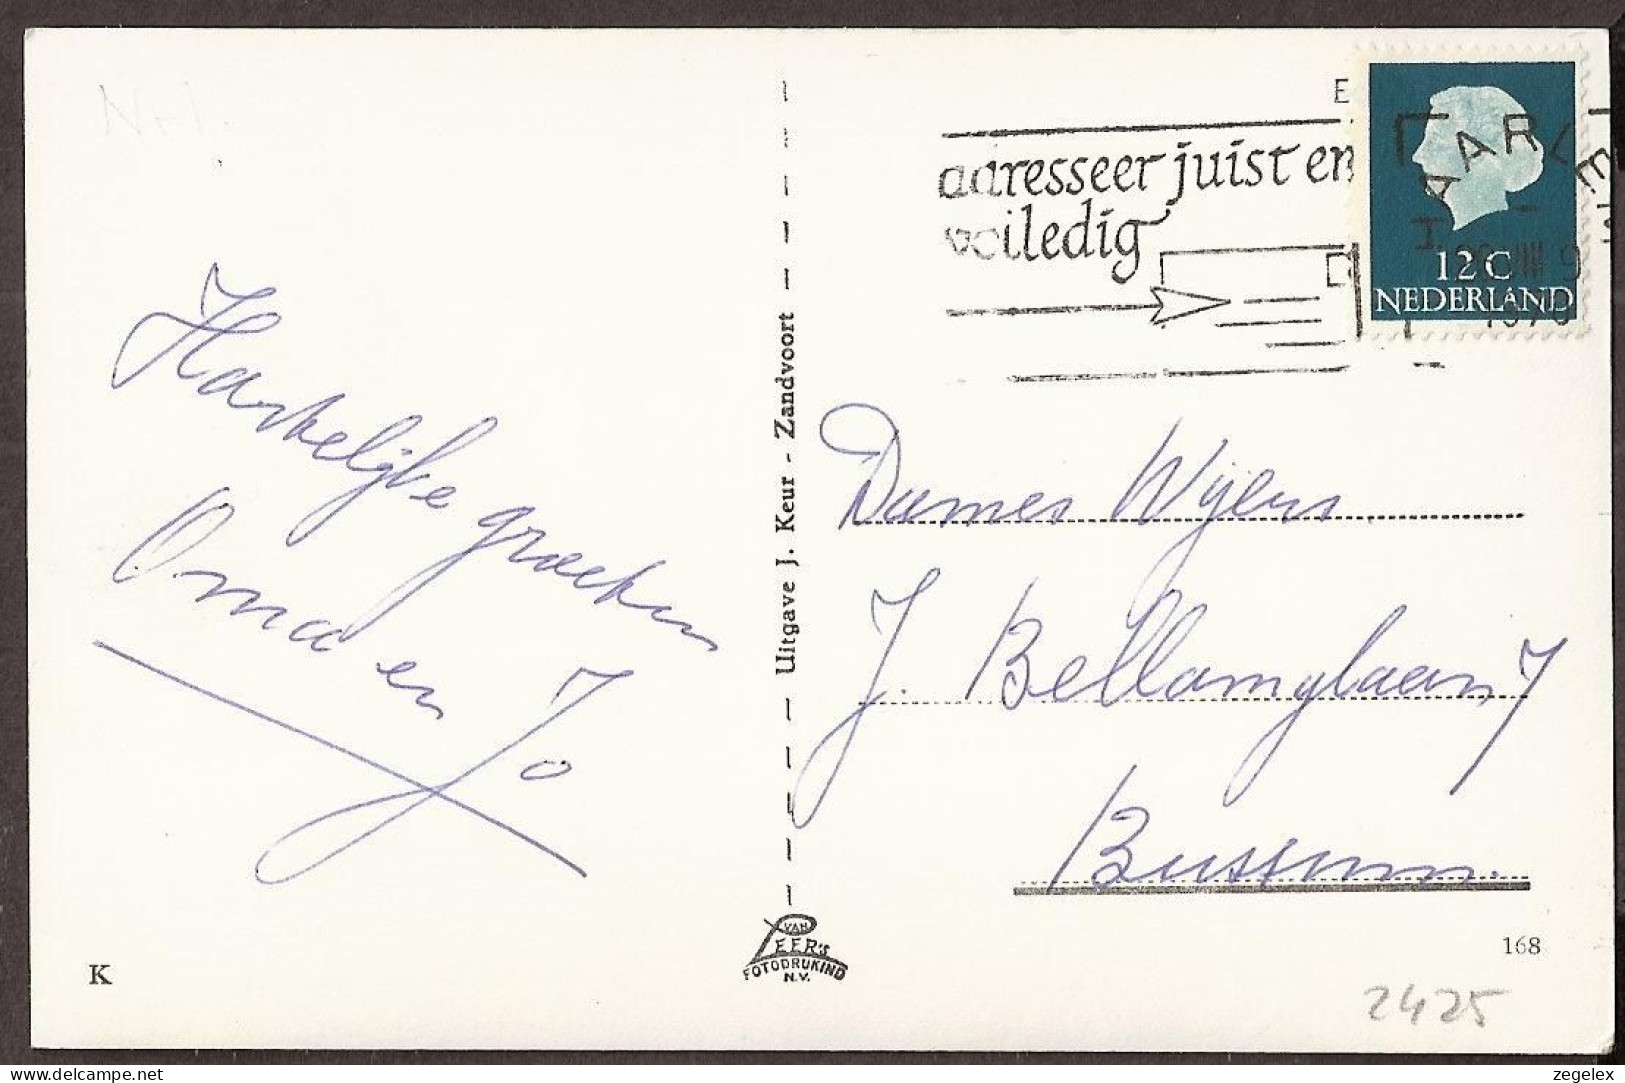 N-H.
E
adresseer juist en
volledig
HAARLEM
12C
NEDERLAND
Hartelijke groeten
Oma en
Jo
Uitgave J. Keur - Zandvoort
Dames Wijers
J. Bellamylaan 7
Bussum.
VAN
LEER'S
FOTODRUKIND
N.V.
K
168
2425
delcampe.net
zegelex